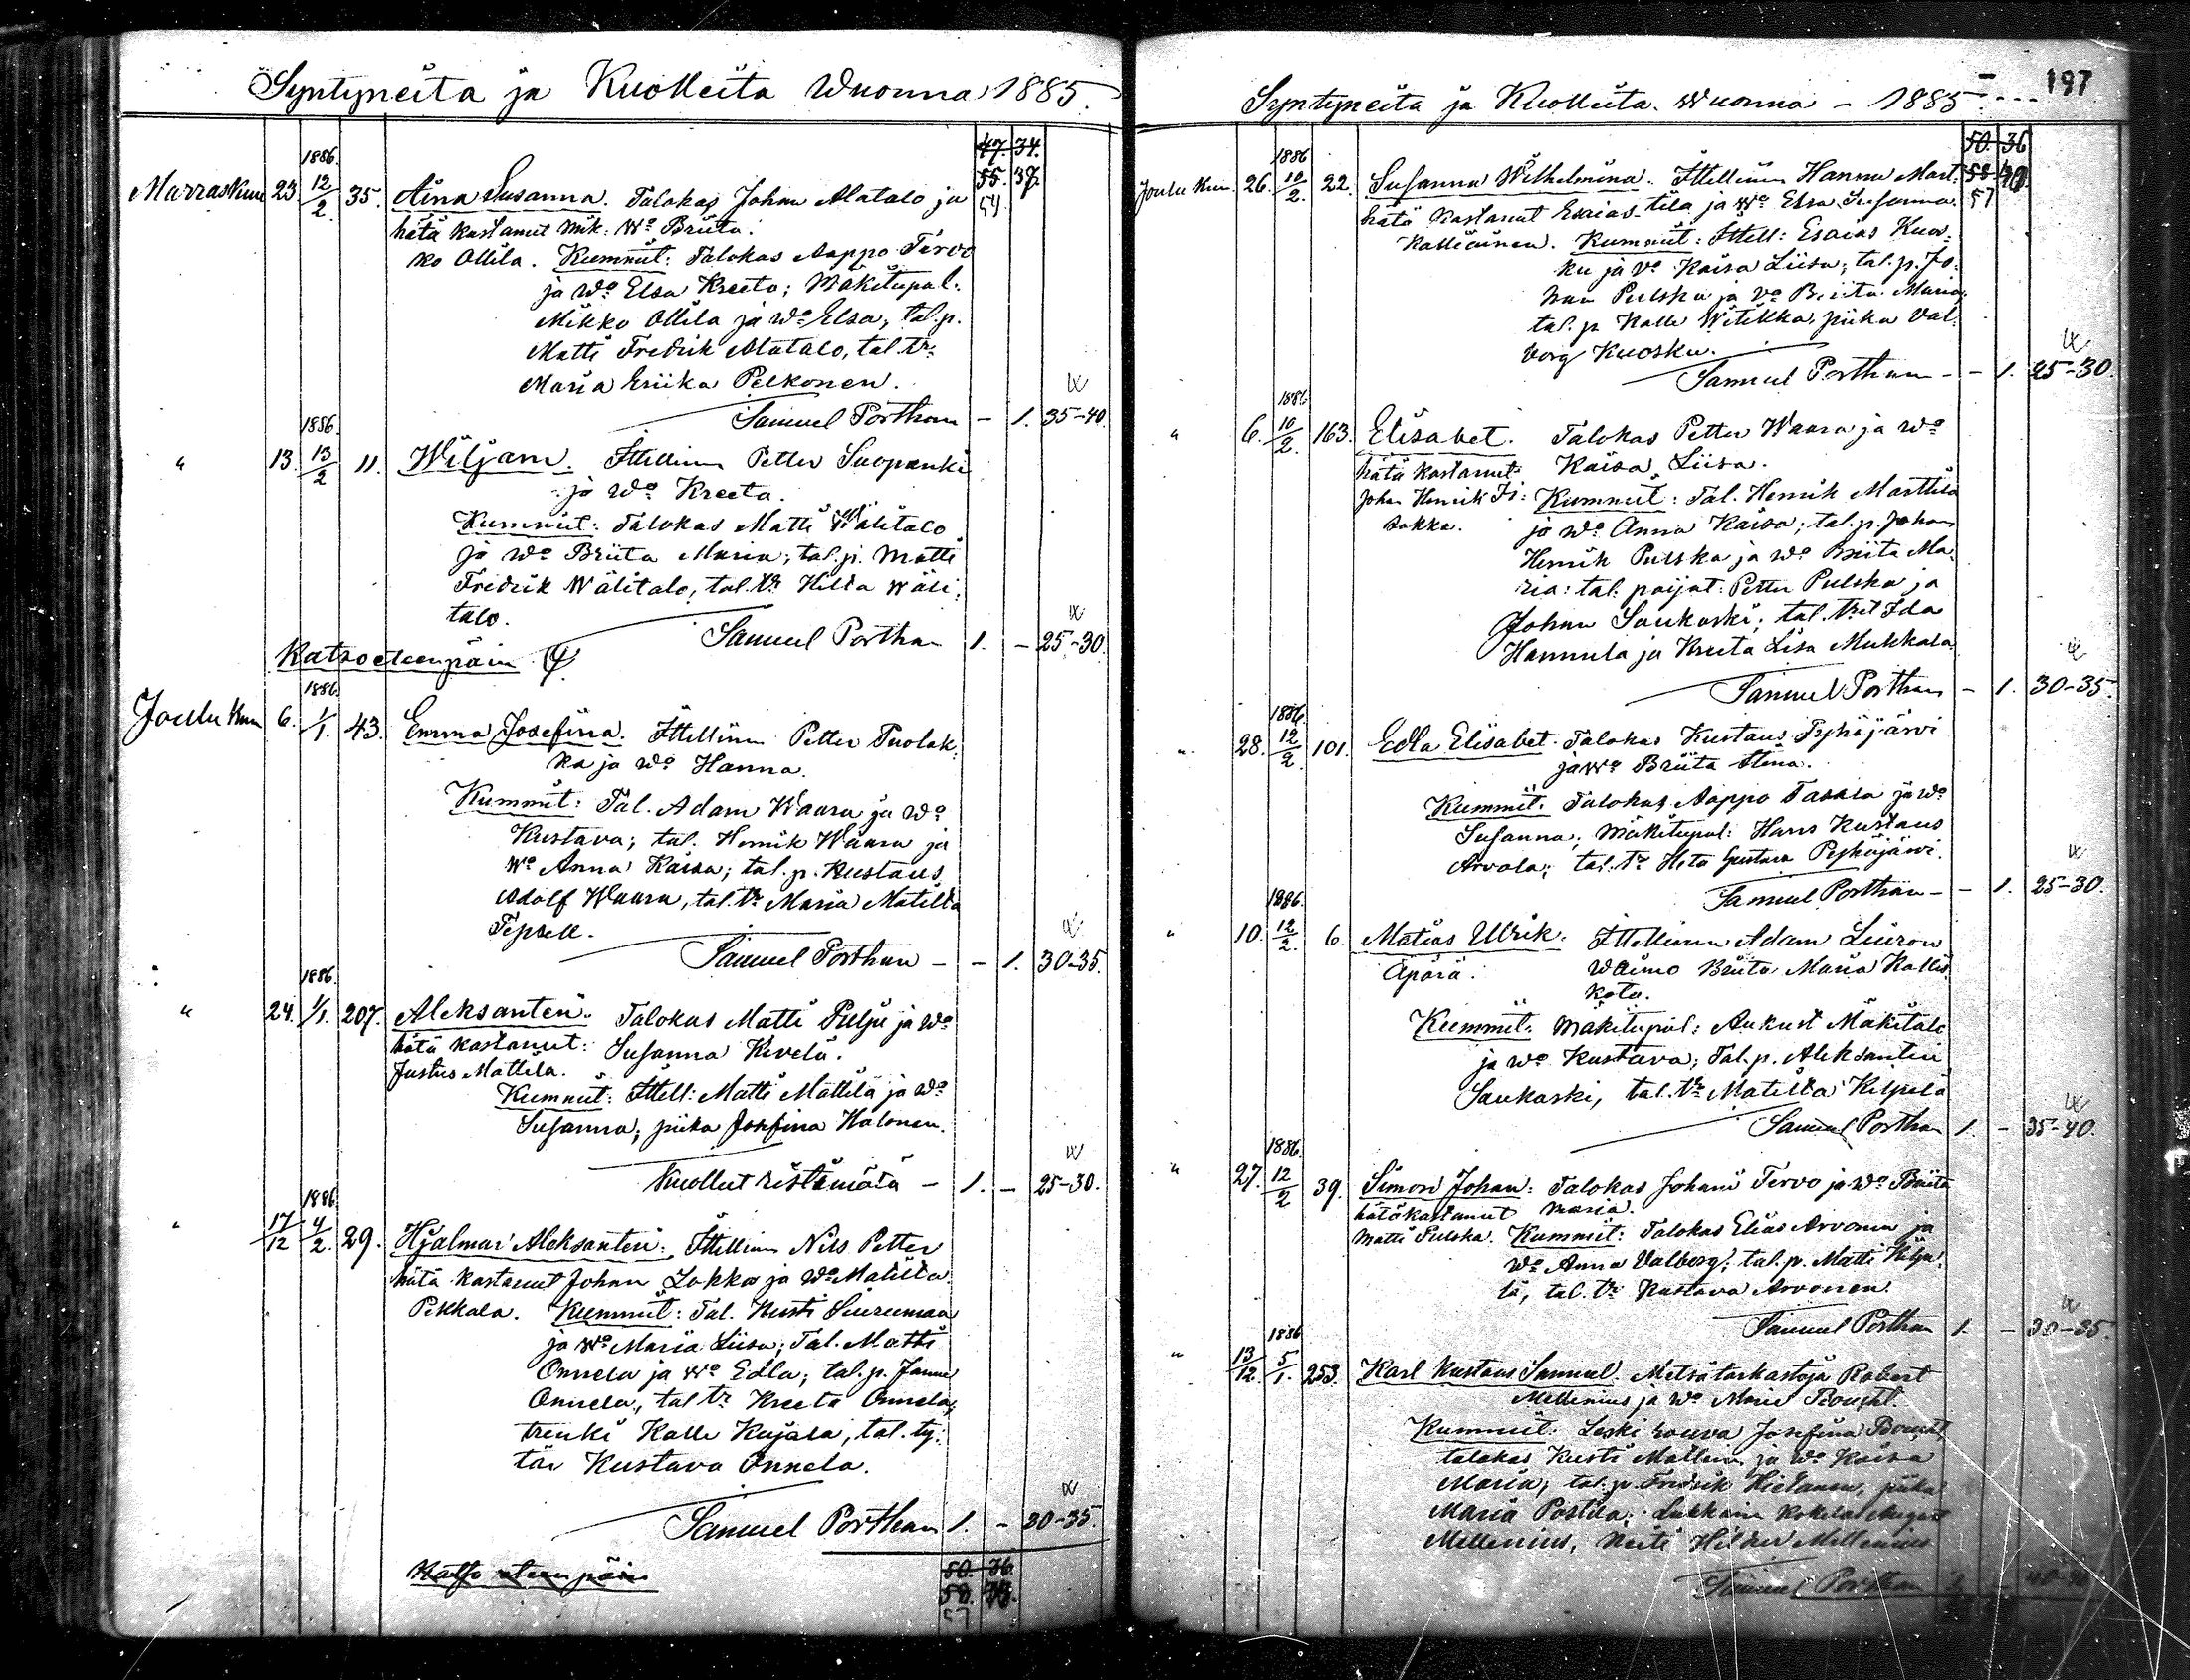 Syntyneitä ja Kuolleita Wuonna 1885.
47. 34.
1886.
Marraskuu 23. 12/2 35. Aina Susanna. Talokas Johan Alatalo ja 55. 37.
54.
hätä kastanut Mik: Wo Briita.
ko Ollila. Kummit: Talokas Aappo Tervo
ja Wo Elsa Kreeta; Mäkitupal:
Mikko Ollila ja Wo Elsa; tal. p.
Matti Fredrik Alatalo, tal. tr:
Maria Eriika Pelkonen.
Samuel Porthan - 1. 35-40.
1886.
" 13. 13/2 11. Wiljam. Ittellinen Petter Suopanki
ja Wo Kreeta.
Kummit: Talokas Matti Wälitalo
ja Wo Briita Maria; tal. p. Matti
Fredrik Wälitalo, tal. tr Hilda Wäli:
talo.
Samuel Porthan 1. - 25-30.
Katso eteenpäin
1886.
Joulu kuu 6. 1/1. 43. Emma Josefina. Ittellinen Petter Puolak:
ka ja Wo Hanna.
Kummit: Tal. Adam Waara ja Wo
Kustava; tal. Henrik Waara ja
Wo Anna Kaisa; tal. p. Kustaus
Adolf Waara, tal. tr Maria Matilda
Tepsell.
Samuel Porthan - - 1. 30-35.
1886.
" 24. 1/1. 207. Aleksanteri. Talokas Matti Pulju ja Wo
hätä kastanut: Susanna Kevelä.
Justus Mattila.
Kummit: Ittell: Matti Mattila ja Wo
Susanna; piika Josefina Halonen.
Kuollut ristimätä - 1. - 25-30.
1886
" 17/12 4/2. 29. Hjalmar Aleksanteri. Ittellinen Nils Petter
hätä kastanut Johan Lokka ja Wo Matilda
Pekkala. Kummit: Tal. Kusti Siurumaa
ja Wo Maria Liisa; Tal. Matti
Onnela ja Wo Edla; tal. p. Janne
Onnela, tal tr Kreeta Onnela;
trenki Kalle Kujala, tal. ty:
tär Kustava Onnela.
Samuel Porthan 1. - 30-35.
Katso eteenpäin 50. 36.
58.
57
197
Syntyneitä ja Kuolleita Wuonna - 1885.
50. 36
1886
Joulu Kuu. 26. 10/2. 22. Susanna Wilhelmina. Ittellinen Hannu Mart:
57
hätä kastanut Esaias tila ja Wo Elsa Susanna.
Kalliainen. Kummit: Ittell: Esaias Kuos:
ku ja Vo Kaisa Liisa; tal. p. Jo:
han Pulska ja Vo Briita Maria;
tal. p Kalle Witikka, piika Val:
borg Kuosku.
Samuel Porthan - - 1. 25-30.
1886
" 6. 10/2. 163. Elisabet. Talokas Petter Waara ja Wo
hätä kastanut: Kaisa Liisa.
Johan Henrik Ii: Kummit: Tal. Henrik Marttila
sakka. ja Wo Anna Kaisa; tal. p. Johan
Henrik Pulska ja Wo Briita Ma:
ria: tal. pojat: Petter Pulska ja
Johan Saukoski; tal. tret Ida
Hannula ja Kreeta Lisa Mukkala
Samuel Porthan - 1. 30-35.
1886.
" 28. 12/2. 101. Edla Elisabet. Talokas Kustaus Pyhäjärvi
ja Wo Briita Stina.
Kummit: Talokas Aappo Tasala ja Wo
Susanna; Mäkitupal: Hans Kustaus
Arvola; tal. tr Heta Gustava Pyhäjärvi.
Samuel Porthan - - 1. 25-30.
1886.
" 10. 12/2. 6. Matias Ulrik. Ittellinen Adam Liuron
Äpärä. Waimo Briita Maria Kallis
kota.
Kummit: Mäkitupal: Aukust Mäkitalo
ja Wo Kustava; Tal. p. Aleksanteri
Saukoski, tal. tr Matilda Kilpelä
Samuel Porthan 1. - 35-40.
1886.
" 27. 12/2 39. Simon Johan: Talokas Johani Tervo ja Wo Briita
hätäkastanut Maria.
Matti Pulska. Kummit: Talokas Elias Arvonen ja
Wo Anna Valborg: tal. p. Matti Kilpe:
lä, tal. tr Kustava Arvonen.
Samuel Porthan 1. - 30-35.
1886
" 13/12. 5/1. 253. Karl Kustaus Samuel. Metsätarkastaja Robert
Mellenius ja Wo Maria Boucht.
Kummit: Leski rouva Josefina Boucht
talokas Kusti Mallinen ja Wo Kaisa
Maria; tal. p. Fredrik Hietanen, piika
Maria Postila; August
Mellenius, Neiti Mellenius
Samuel Porthan